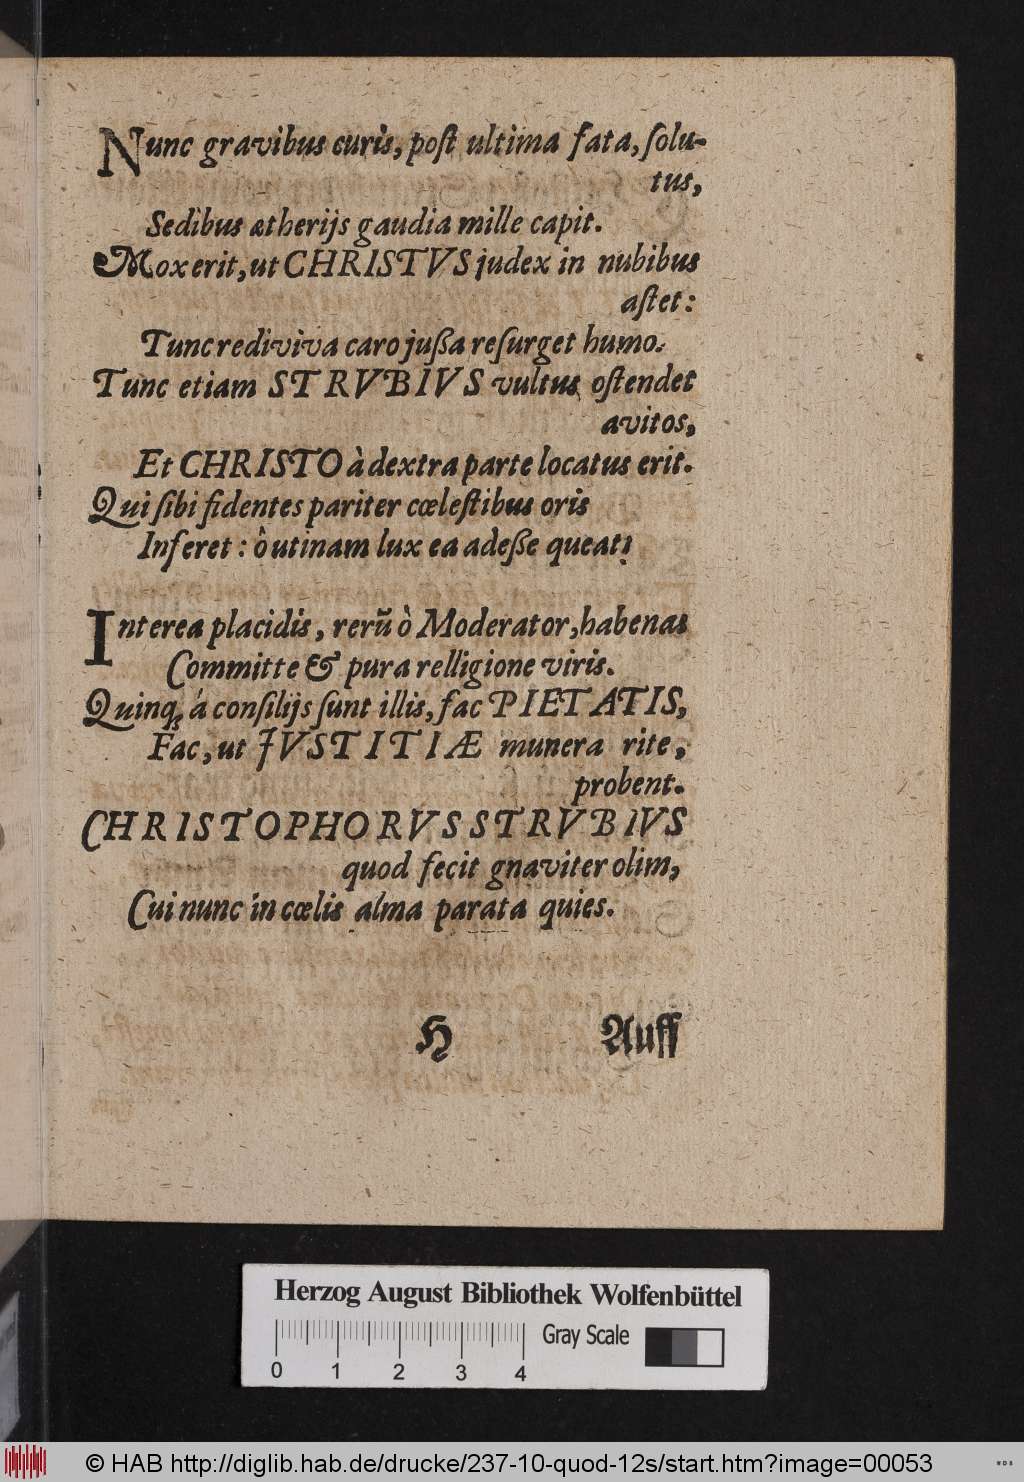 Nunc gravibus curis, post ultima fata, solu-
tus,
Sedibus ætherijs gaudia mille capit.
Mox erit, ut CHRISTVS judex in nubibus
astet:
Tunc rediviva caro jußa resurget humo.
Tunc etiam STRVBIVS vultus ostendet
avitos,
Et CHRISTO à dextra parte locatus erit.
Qui sibi fidentes pariter cœlestibus oris
Inferet: ò utinam lux ea adeße queat!
Interea placidis, rerũ ò Moderator, habenas
Committe & pura relligione viris.
Quinq; á consilijs sunt illis, fac PIETATIS,
Fac, ut JVSTITIÆ munera rite,
probent.
CHRISTOPHORVS STRVBIVS
quod fecit gnaviter olim,
Cui nunc in cœlis alma parata quies.
H Auff
Herzog August Bibliothek Wolfenbüttel
0 1 2 3 4 Gray Scale
© HAB http://diglib.hab.de/drucke/237-10-quod-12s/start.htm?image=00053